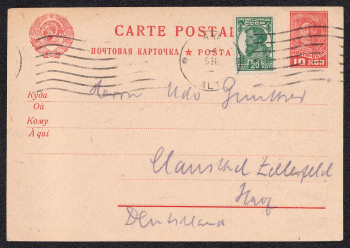 CARTE POSTALE
ПОЧТОВАЯ КАРТОЧКА ★ POŜTA
20
10 КОП
Куда
Où
Кому
A qui
Herrn Udo Günther
Clausthal Zellerfeld
Harz
Deutschland